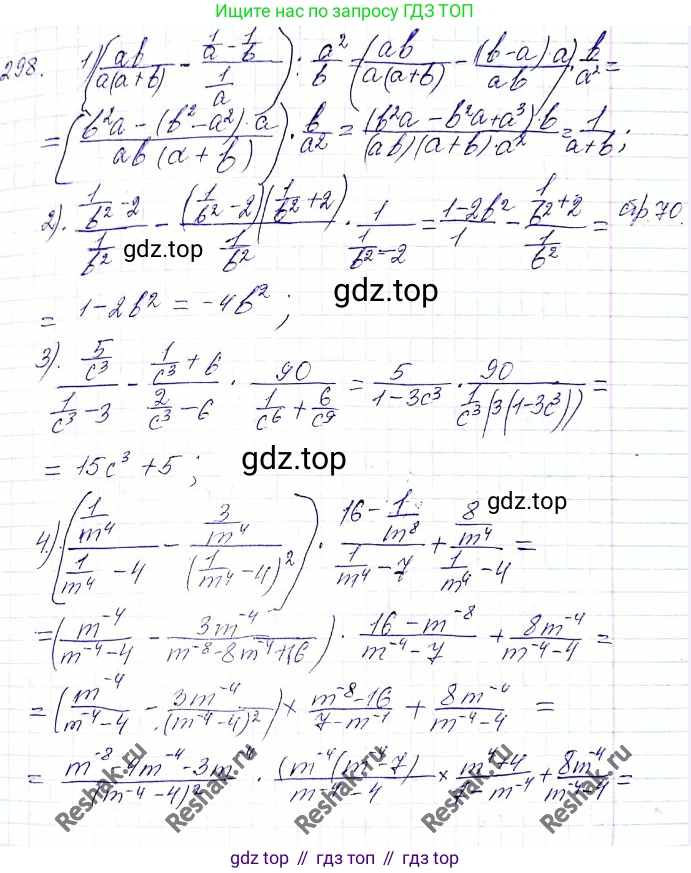 Ищите нас по поиску в ТГ, по запросу: ГДЗ TOP
298. 1) (ab/(a(a+b)) - (1/a - 1/b)/(1/a)) : a²/b = (ab/(a(a+b)) - ((b-a)·a)/ab) · b/a² =
= ((b²a - (b²-a²)·a)/(ab(a+b))) · b/a² = ((b²a - b²a + a³)·b)/((ab)(a+b)·a²) = 1/(a+b);
2). (1/b² - 2)/(1/b²) - ((1/b² - 2)(1/b² + 2))/(1/b²) · 1/(1/b² - 2) = (1-2b²)/1 - (1/b² + 2)/(1/b²) = стр. 70.
gdz.top
= 1-2b² = -4b²;
gdz.top
3). (5/c³)/(1/c³ - 3) - (1/c³ + 6)/(2/c³ - 6) · 90/(1/c⁶ + 6/c⁹) = 5/(1-3c³) · 90/(1/c³(3(1-3c³))) =
= 15c³ + 5;
gdz.top
gdz.top
4.) ((1/m⁴)/(1/m⁴ - 4) - (3/m⁴)/((1/m⁴ - 4)²)) · (16 - 1/m⁸)/(1/m⁴ - 7) + (8/m⁴)/(1/m⁴ - 4) =
= (m⁻⁴/(m⁻⁴-4) - 3m⁻⁴/(m⁻⁸-8m⁻⁴+16)) · (16-m⁻⁸)/(m⁻⁴-7) + 8m⁻⁴/(m⁻⁴-4) =
= (m⁻⁴/(m⁻⁴-4) - 3m⁻⁴/(m⁻⁴-4)²) × (m⁻⁸-16)/(7-m⁻⁴) + 8m⁻⁴/(m⁻⁴-4) =
= (m⁻⁸-4m⁻⁴-3m⁻⁴)/(m⁻⁴-4)² · (m⁻⁴(m⁻⁴-7))/(m⁻⁴-4) × (m⁻⁴+4)/(7-m⁻⁴) + 8m⁻⁴/(m⁻⁴-4) =
Reshak.ru Reshak.ru Reshak.ru Reshak.ru
gdz.top // гдз топ // gdz.top